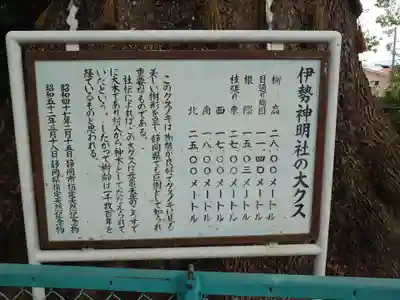 伊勢神明社の大クス
樹高 二八.〇〇メートル
目通り周囲 一一.四〇メートル
根際 一五.〇三メートル
枝張り東 二七.〇〇メートル
西 一七.〇〇メートル
南 一八.〇〇メートル
北 二五.〇〇メートル
このクスノキは
美しい樹形を呈し静岡県でも巨樹として知られ
貴重なものである。
社伝によれば、この大クスは
に大木であり村人から神木としてたたえられて
いたという。したがって樹齢は一千数百年を
経ているものと思われる。
昭和四十七年二月十五日静岡市指定天然記念物
昭和五十二年三月十八日静岡県指定天然記念物